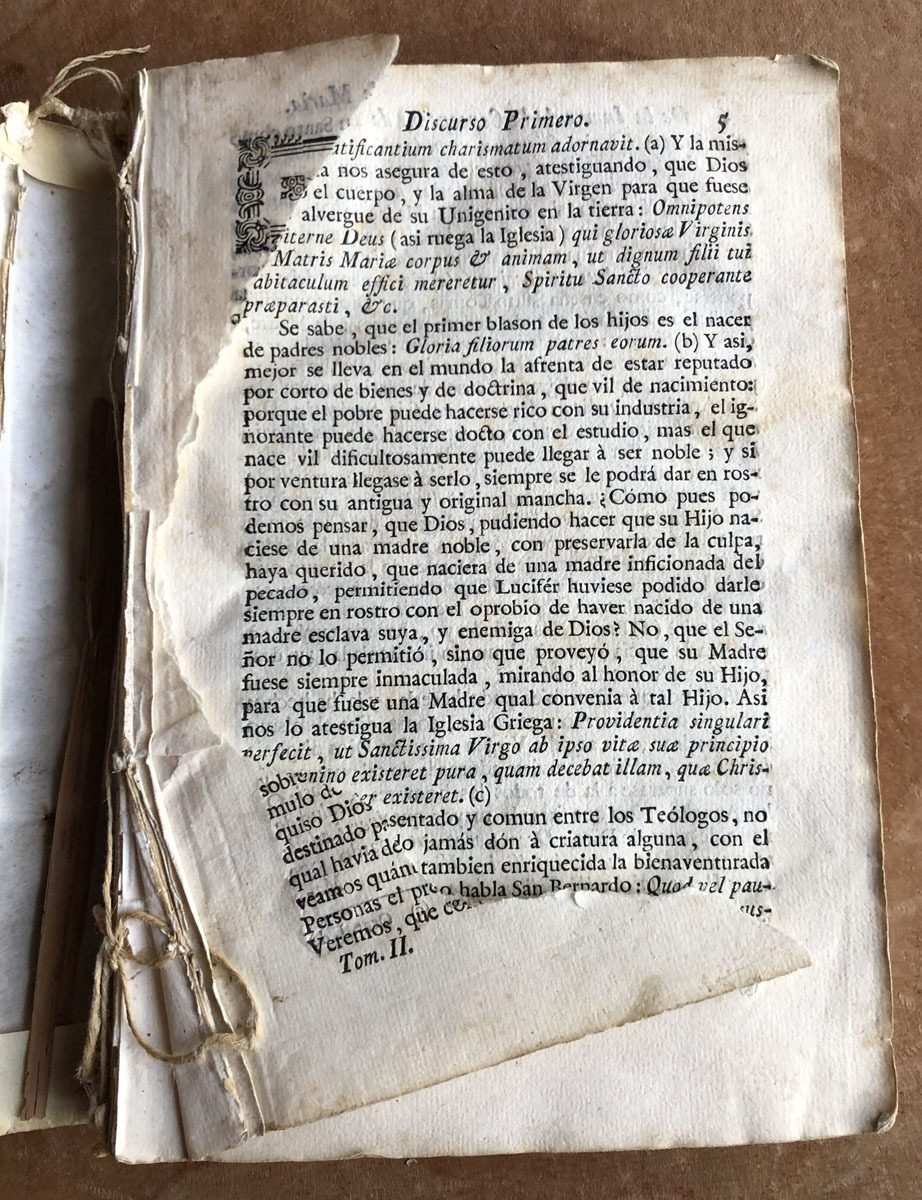 Discurso Primero. 5
tificantium charismatum adornavit. (a) Y la mis-
a nos asegura de esto, atestiguando, que Dios
el cuerpo, y la alma de la Virgen para que fuese
alvergue de su Unigenito en la tierra: Omnipotens
piterne Deus (asi ruega la Iglesia) qui gloriosæ Virginis
Matris Mariæ corpus & animam, ut dignum filii tui
abitaculum effici mereretur, Spiritu Sancto cooperante
præparasti, &c.
Se sabe, que el primer blason de los hijos es el nacer
de padres nobles: Gloria filiorum patres eorum. (b) Y asi,
mejor se lleva en el mundo la afrenta de estar reputado
por corto de bienes y de doctrina, que vil de nacimiento:
porque el pobre puede hacerse rico con su industria, el ig-
norante puede hacerse docto con el estudio, mas el que
nace vil dificultosamente puede llegar à ser noble; y si
por ventura llegase à serlo, siempre se le podrá dar en ros-
tro con su antigua y original mancha. ¿Cómo pues po-
demos pensar, que Dios, pudiendo hacer que su Hijo na-
ciese de una madre noble, con preservarla de la culpa,
haya querido, que naciera de una madre inficionada del
pecado, permitiendo que Lucifér huviese podido darle
siempre en rostro con el oprobio de haver nacido de una
madre esclava suya, y enemiga de Dios? No, que el Se-
ñor no lo permitió, sino que proveyó, que su Madre
fuese siempre inmaculada, mirando al honor de su Hijo,
para que fuese una Madre qual convenia à tal Hijo. Asi
nos lo atestigua la Iglesia Griega: Providentia singulari
perfecit, ut Sanctissima Virgo ab ipso vitæ suæ principio
nino existeret pura, quam decebat illam, quæ Chris-
er existeret. (c)
sentado y comun entre los Teólogos, no
o jamás dón à criatura alguna, con el
tambien enriquecida la bienaventurada
habla San Bernardo: Quod vel pau-
us-
sobre
mulo de
quiso Dios
destinado p
qual havia de
veamos quán
Personas el pr
Veremos, que
Tom. II.